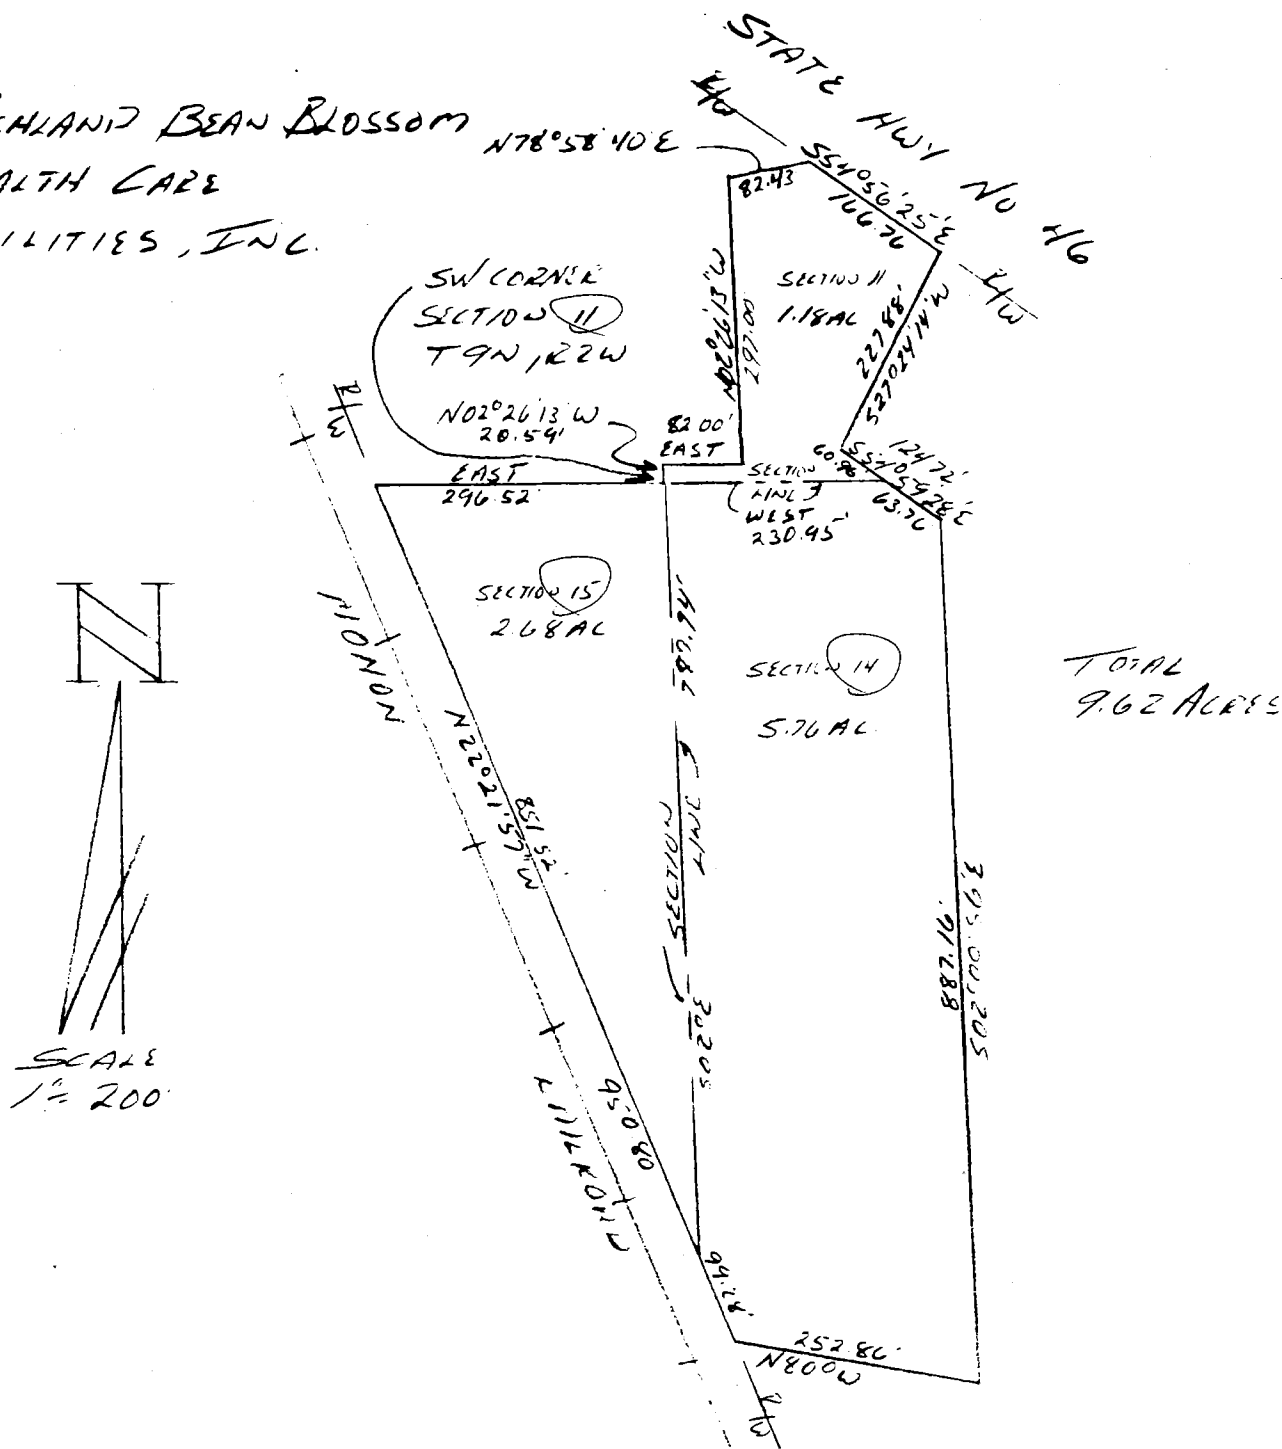 BEAN BLOSSOM
CARE
INC.
STATE HWY NO 46
R/W
N78°58'40"E
82.43
S54°56'25"E
166.76
R/W
SW CORNER
SECTION 11
T9N, R2W
N02°26'13"W
297.00
SECTION 11
1.18 AC
227.88'
S27°24'14"W
N02°26'13"W
20.59'
82.00'
EAST
R/W
EAST
296.52
SECTION
LINE
WEST
230.95'
60.96
124.72'
S54°59'28"E
63.76
SECTION 15
2.68 AC
787.94'
SECTION 14
5.76 AC.
TOTAL
9.62 ACRES
N
SCALE
1"= 200'
MONON
N22°21'57"W
851.52'
SECTION
LINE
S02°03'E
887.16'
940.80
RAILROAD
252.86'
N80°W
R/W